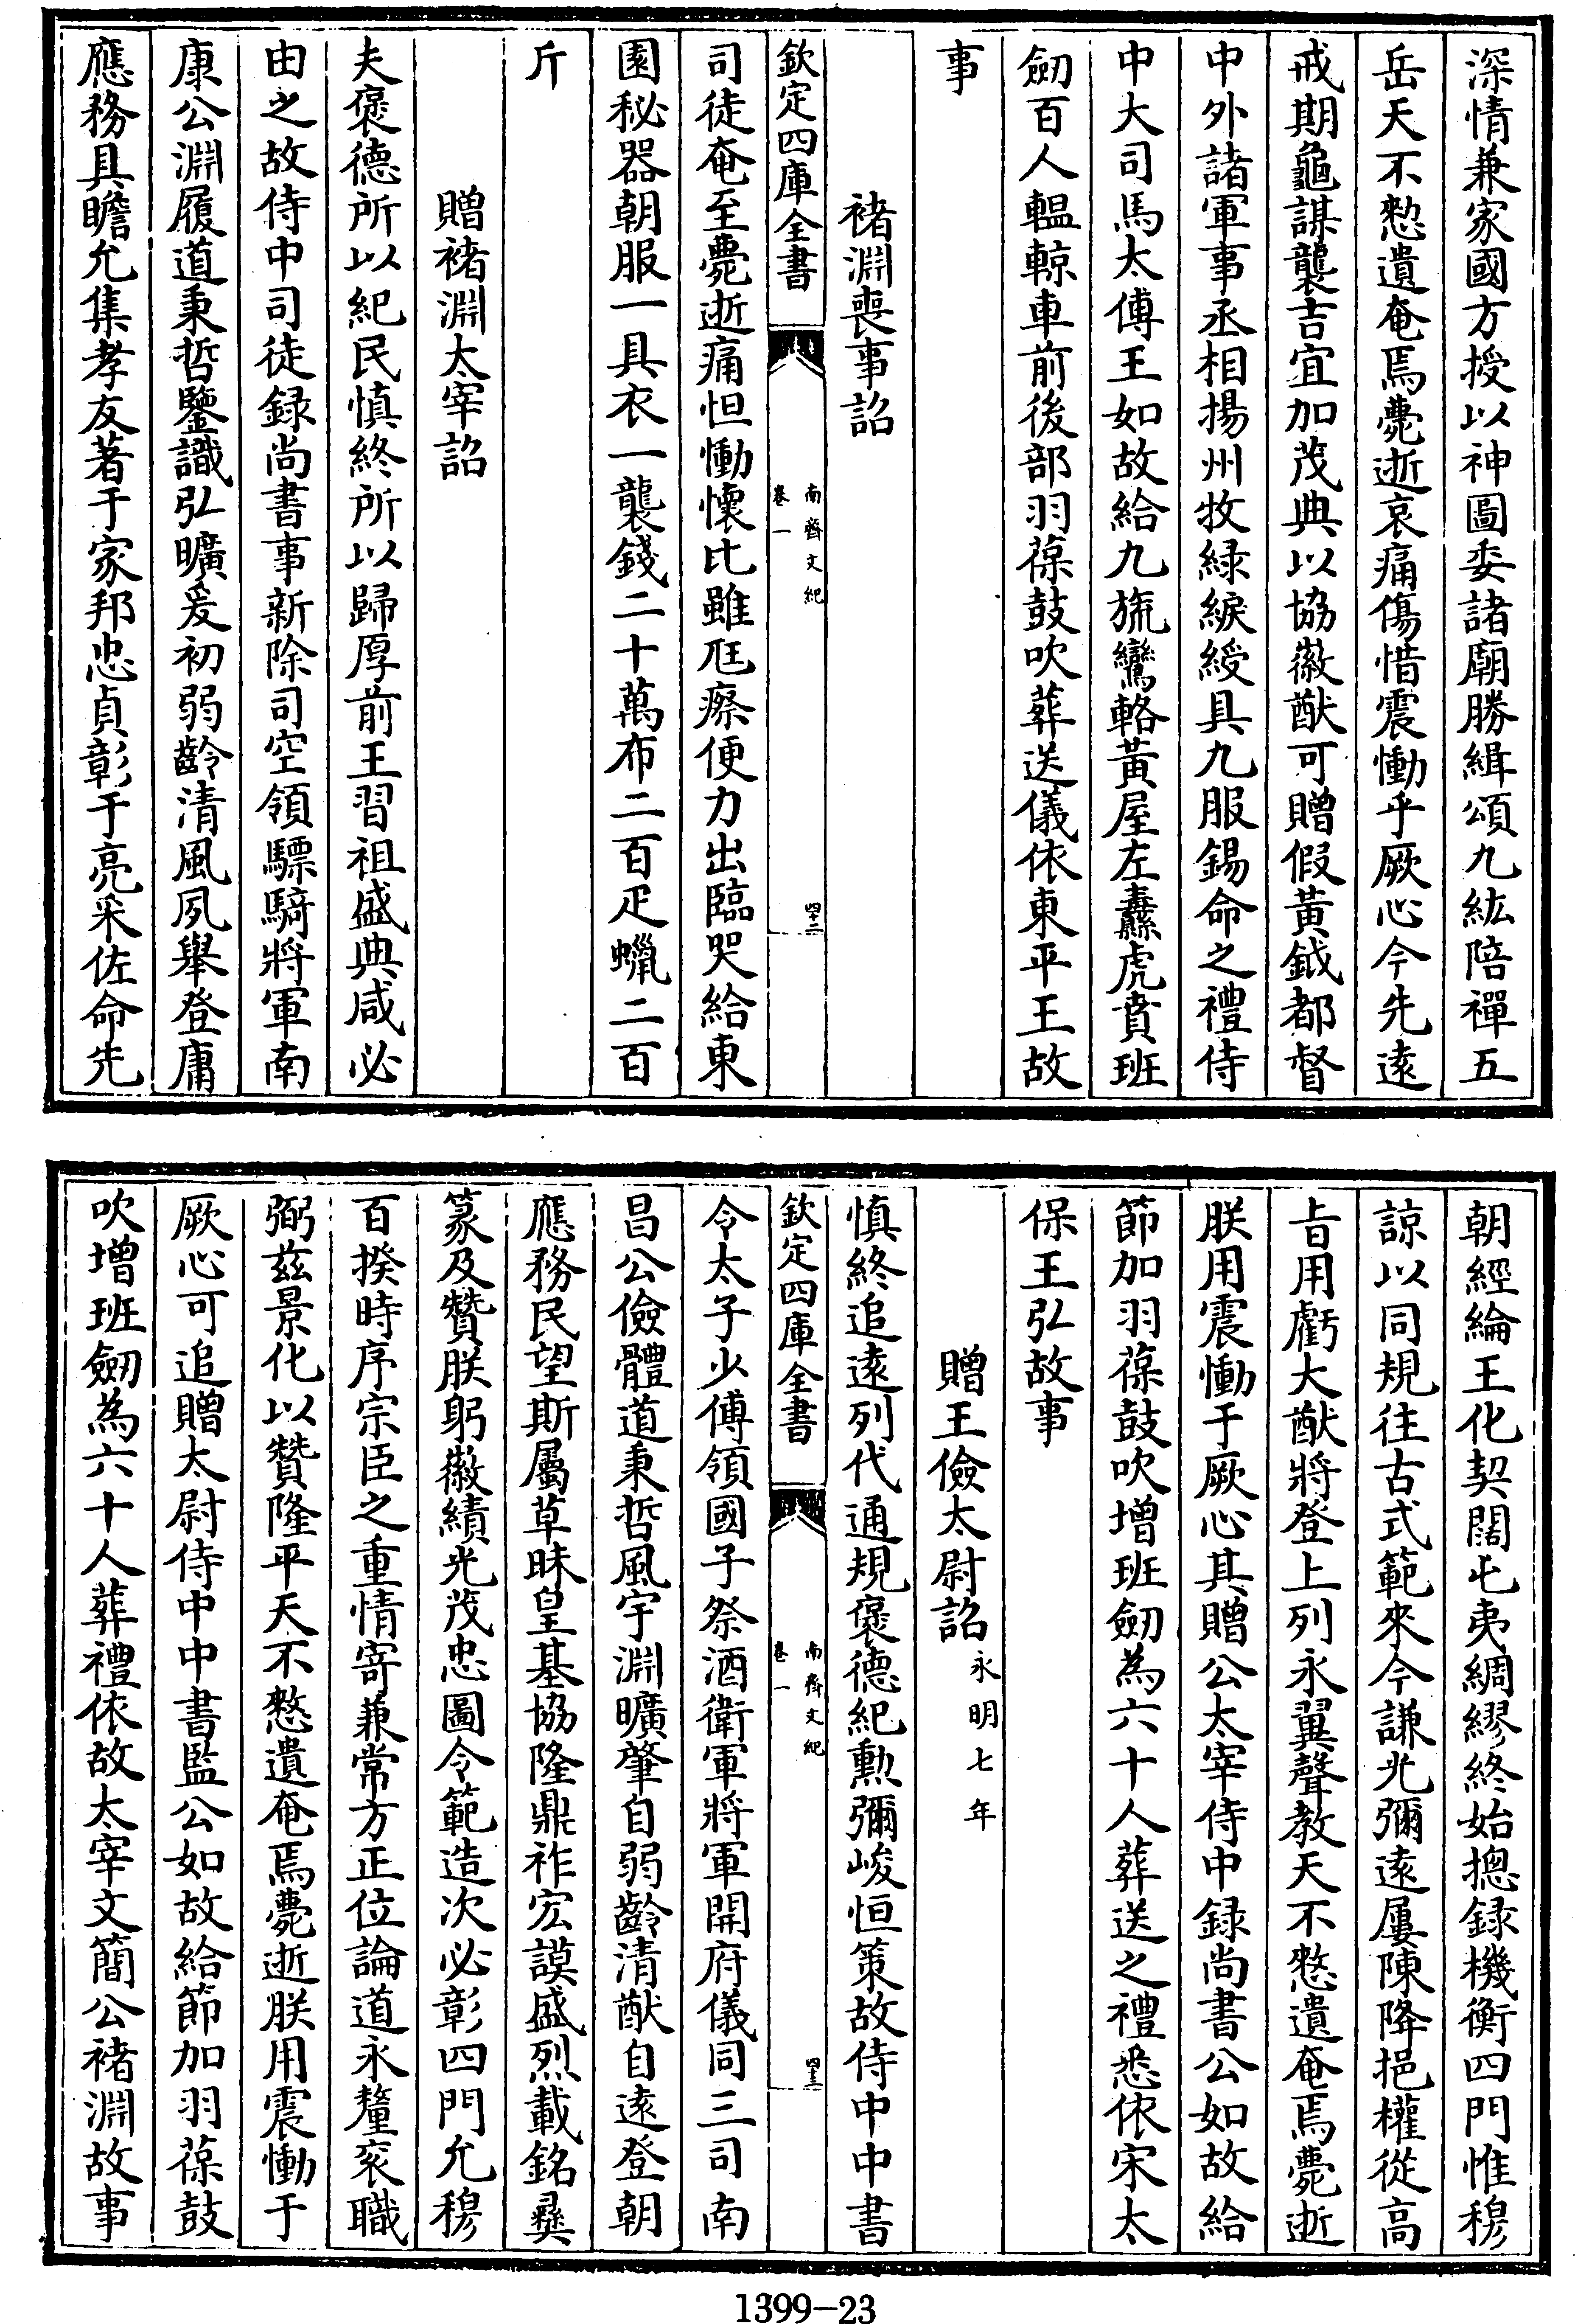 深情兼家國方授以神圖委諸廟勝緝頌九紘陪禪五
岳天不憗遺奄焉薨逝哀痛傷惜震慟乎厥心今先遠
戒期龜謀襲吉宜加茂典以協徽猷可贈假黃鉞都督
中外諸軍事丞相揚州牧緑綟綬具九服錫命之禮侍
中大司馬太傅王如故給九旒鸞輅黃屋左纛虎賁班
劒百人轀輬車前後部羽葆鼓吹葬送儀依東平王故
事
褚淵喪事詔
欽定四庫全書
南齊文紀
卷一
四十二
司徒奄至薨逝痛怛慟懷比雖尫瘵便力出臨哭給東
園秘器朝服一具衣一襲錢二十萬布二百疋蠟二百
斤
贈褚淵太宰詔
夫褒德所以紀民慎終所以歸厚前王習祖盛典咸必
由之故侍中司徒録尚書事新除司空領驃騎將軍南
康公淵履道秉哲鑒識弘曠爰初弱齡清風夙舉登庸
應務具瞻允集孝友著于家邦忠貞彰于亮采佐命先
朝經綸王化契闊屯夷綢繆終始揔録機衡四門惟穆
諒以同規往古式範來今謙光彌遠屢陳降挹權從高
旨用虧大猷將登上列永翼聲教天不憗遺奄焉薨逝
朕用震慟于厥心其贈公太宰侍中録尚書公如故給
節加羽葆鼓吹增班劒為六十人葬送之禮悉依宋太
保王弘故事
贈王儉太尉詔永明七年
慎終追遠列代通規褒德紀勲彌峻恒策故侍中中書
欽定四庫全書
南齊文紀
卷一
四十三
令太子少傅領國子祭酒衛軍將軍開府儀同三司南
昌公儉體道秉哲風宇淵曠肇自弱齡清猷自遠登朝
應務民望斯屬草昧皇基協隆鼎祚宏謨盛烈載銘彝
篆及贊朕躬徽績光茂忠圖令範造次必彰四門允穆
百揆時序宗臣之重情寄兼常方正位論道永釐衮職
弼兹景化以贊隆平天不憗遺奄焉薨逝朕用震慟于
厥心可追贈太尉侍中中書監公如故給節加羽葆鼓
吹增班劒為六十人葬禮依故太宰文簡公褚淵故事
1399-23